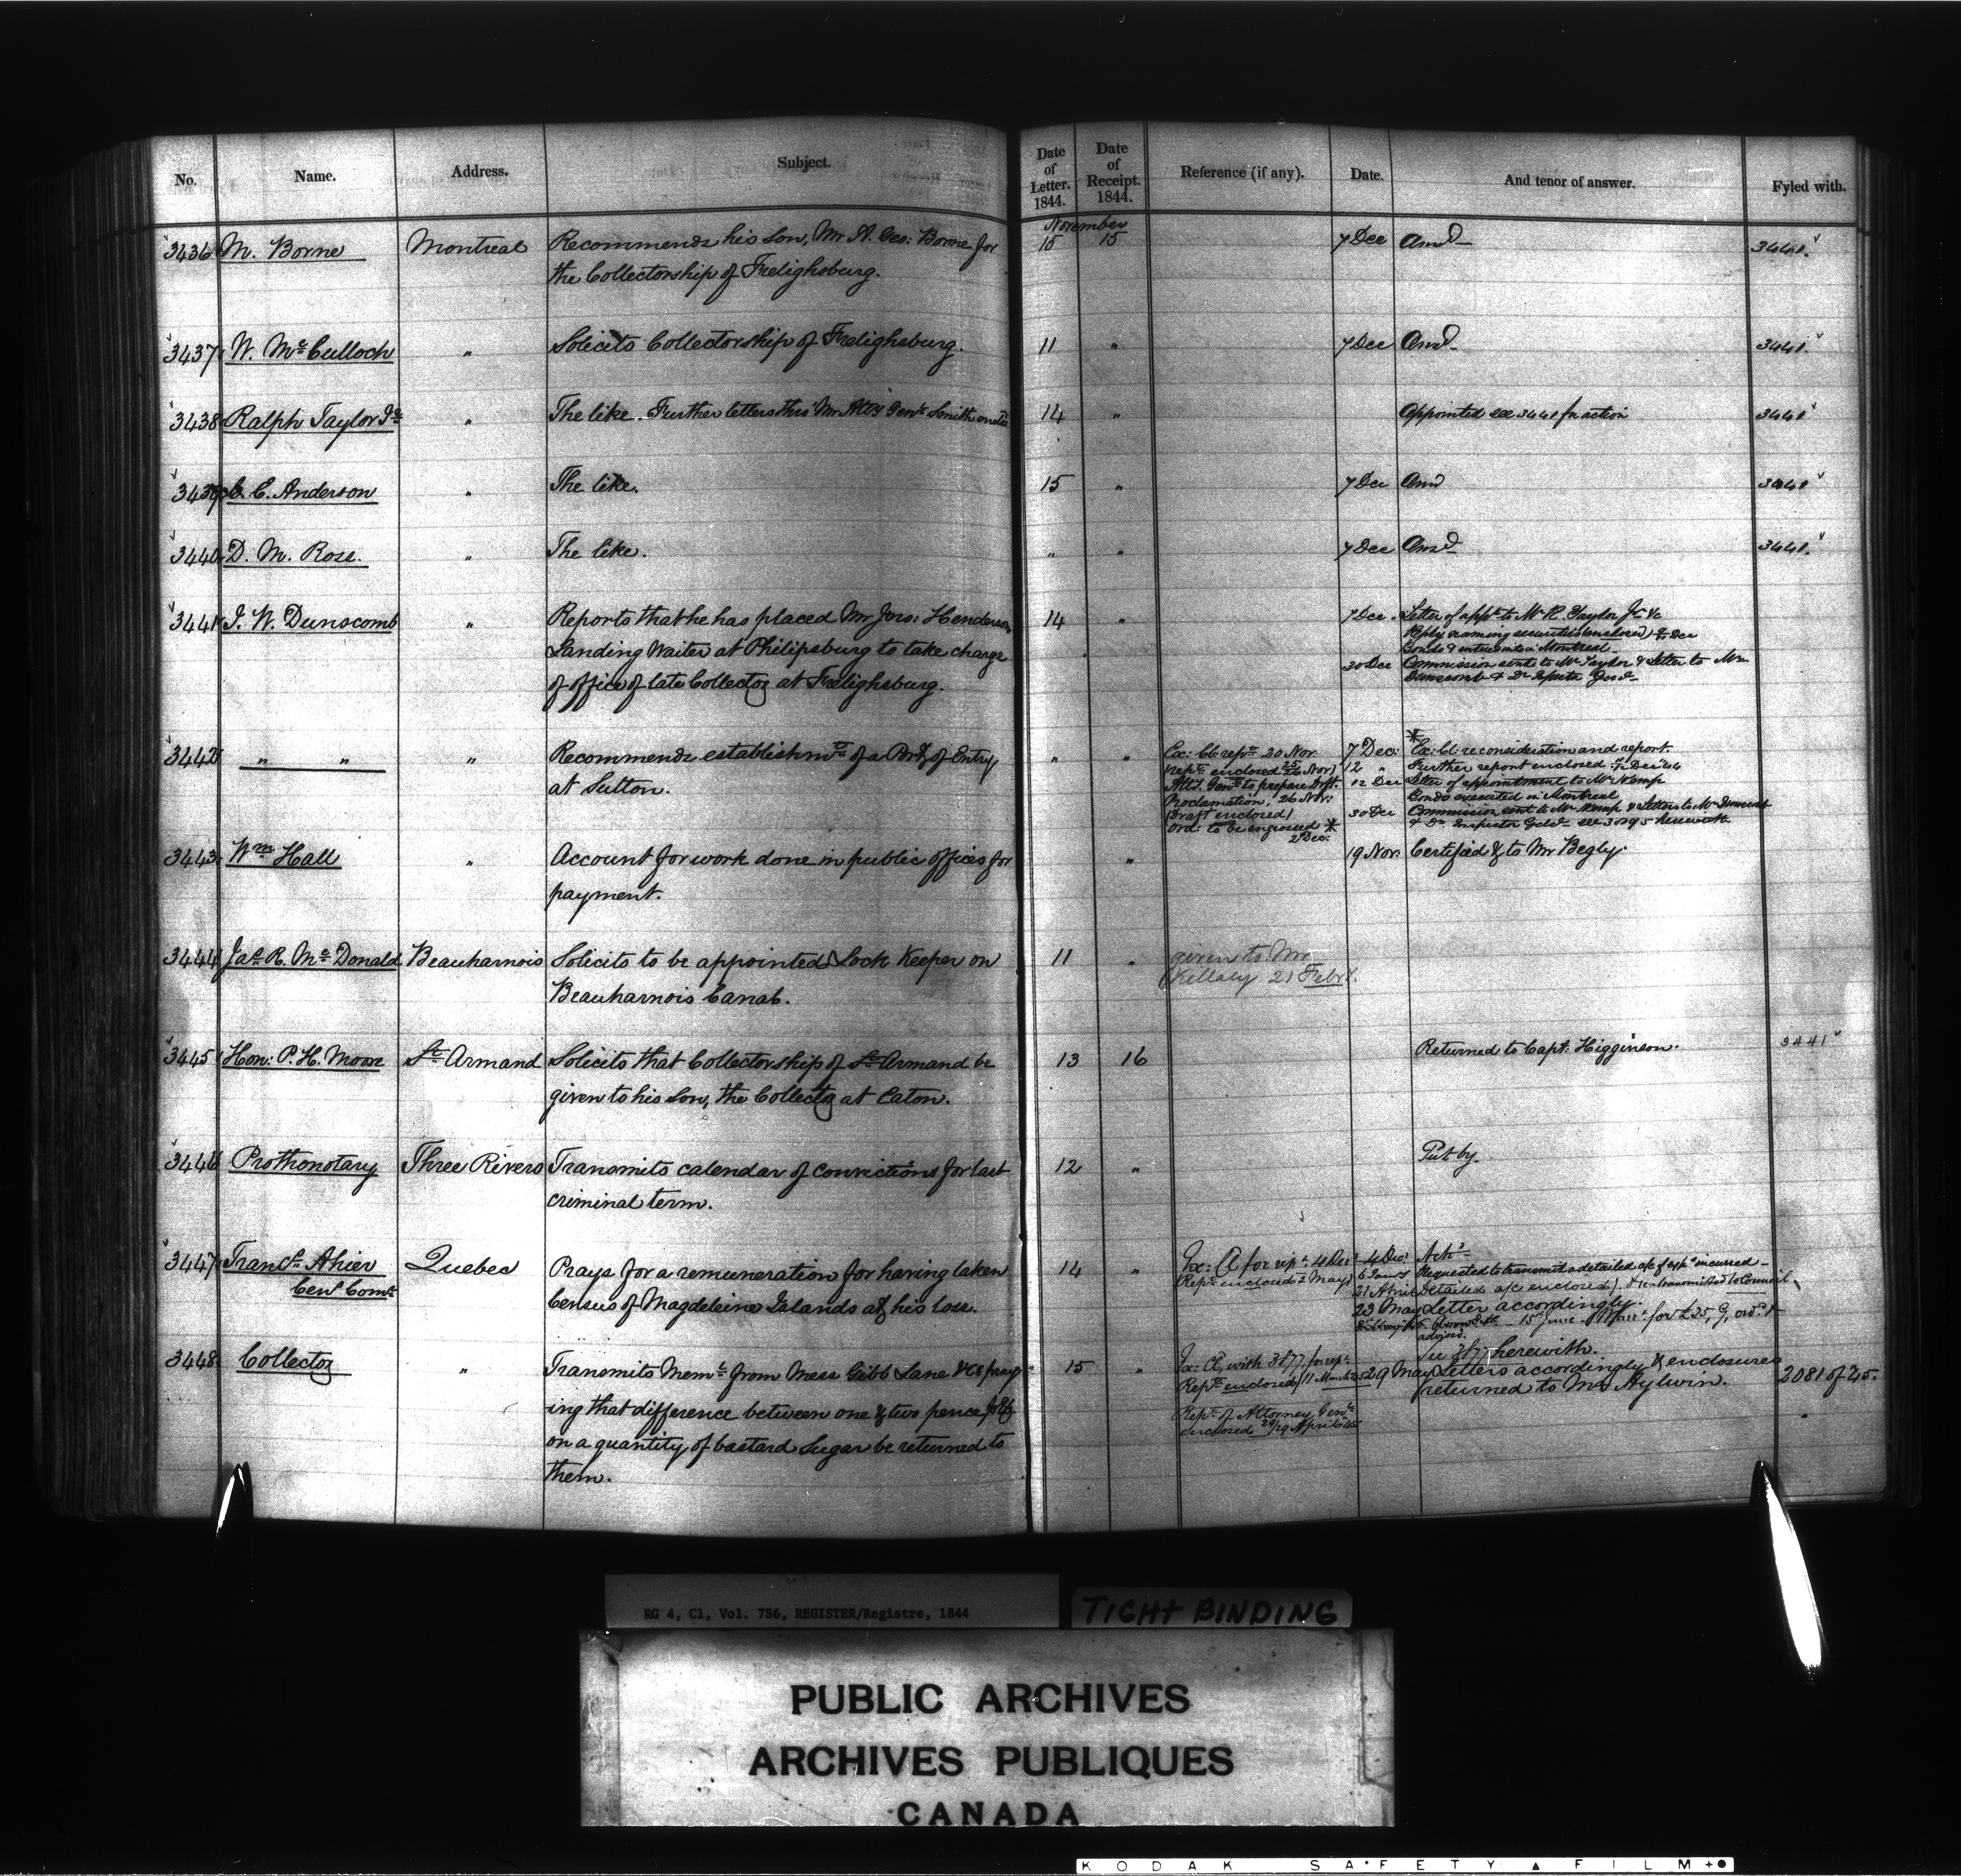 No. Name. Address. Subject. Date of Letter. 1844. Date of Receipt. 1844. Reference (if any). Date. And tenor of answer. Fyled with.
November
3436 M. Borne Montreal Recommends his son, Mr A. Geo: Borne for 15 15 7 Dec Ansd 3441.
the Collectorship of Frelighsburg.
3437 W. Mc Culloch " Solicits Collectorship of Frelighsburg. 11 " 7 Dec Ansd 3441.
3438 Ralph Taylor Jr " The like. Further letters thro' Mr Atty Genl Smith 14 " Appointed see 3441 for action 3441
3439 C. Anderson " The like. 15 " 7 Dec Ansd 3441
3440 D. M. Rose. " The like. " " 7 Dec Ansd 3441.
3441 J. W. Dunscomb " Reports that he has placed Mr Jos: Henderson 14 " 7 Dec. Letter of appt to Mr R. Taylor Jr &c
Landing Waiter at Philipsburg to take charge Reply naming securities (enclosed) Dec
Bonds executed in Montreal
of office of late Collector at Frelighsburg. 30 Dec Commission sent to Mr Taylor & letter to Mr
Dunscomb & Dr Inspectr Genl
3442 " " " Recommends establishmt of a Port of Entry " " Ex: Cl: rept 20 Nov. 7 Dec: * Ex: Cl: reconsideration and report.
at Sutton. rept enclosed 25/26 Nov) 12 " Further report enclosed Dec 44
Atty. Genl to prepare dft. 12 Dec Letter of appointment to Mr Kemp
Proclamation, 26 Nov: Bonds executed in Montreal
(Draft enclosed) 30 Dec Commission sent to Mr Kemp & letters to Mr Dunscomb
Ord: to be engrossed * & Dr Inspector Genl see 3095 herewith
2 Dec:
3443 Wm Hall " Account for work done in public offices for " 19 Nov. Certified & to Mr Begly.
payment.
3444 Jas R. Mc Donald Beauharnois Solicits to be appointed Lock Keeper on 11 " given to Mr
Beauharnois Canal. Killaly 21 Febry.
3445 Hon: P. H. Moore St Armand Solicits that Collectorship of St Armand be 13 16 Returned to Capt: Higginson. 3441
given to his Son, the Collector at Eaton.
3446 Prothonotary Three Rivers Transmits calendar of convictions for last 12 " Put by.
criminal term.
3447 Francs Ahier Quebec Prays for a remuneration for having taken 14 " Ex: Cl for rept 4 Dec 4 Dec Ackd
Cens Comr Census of Magdeleine Islands at his loss. (Rept enclosed 2 May) 6 Jany Requested to transmit a detailed a/c of expe incurred
21 April Detailed a/c enclosed). & retransmitted to Council
23 May Letter accordingly.
15 June Warrt for £25, ord. &
advised.
3448 Collector " Transmits Meml from Mess Gibb Lane & Co pray 15 " Ex: Cl, with 3177 for rept See 3177 herewith.
Rept enclosed 11 March 29 May Letters accordingly & enclosures
returned to Mr Aylwin. 2081 of 45.
ing that difference between one & two pence p lb Rept of Attorney Genl
enclosed 29 April
on a quantity of bastard Sugar be returned to
them.
RG 4, C1, Vol. 756, REGISTER/Registre, 1844
TIGHT BINDING
PUBLIC ARCHIVES
ARCHIVES PUBLIQUES
CANADA
KODAK SAFETY ▲ FILM